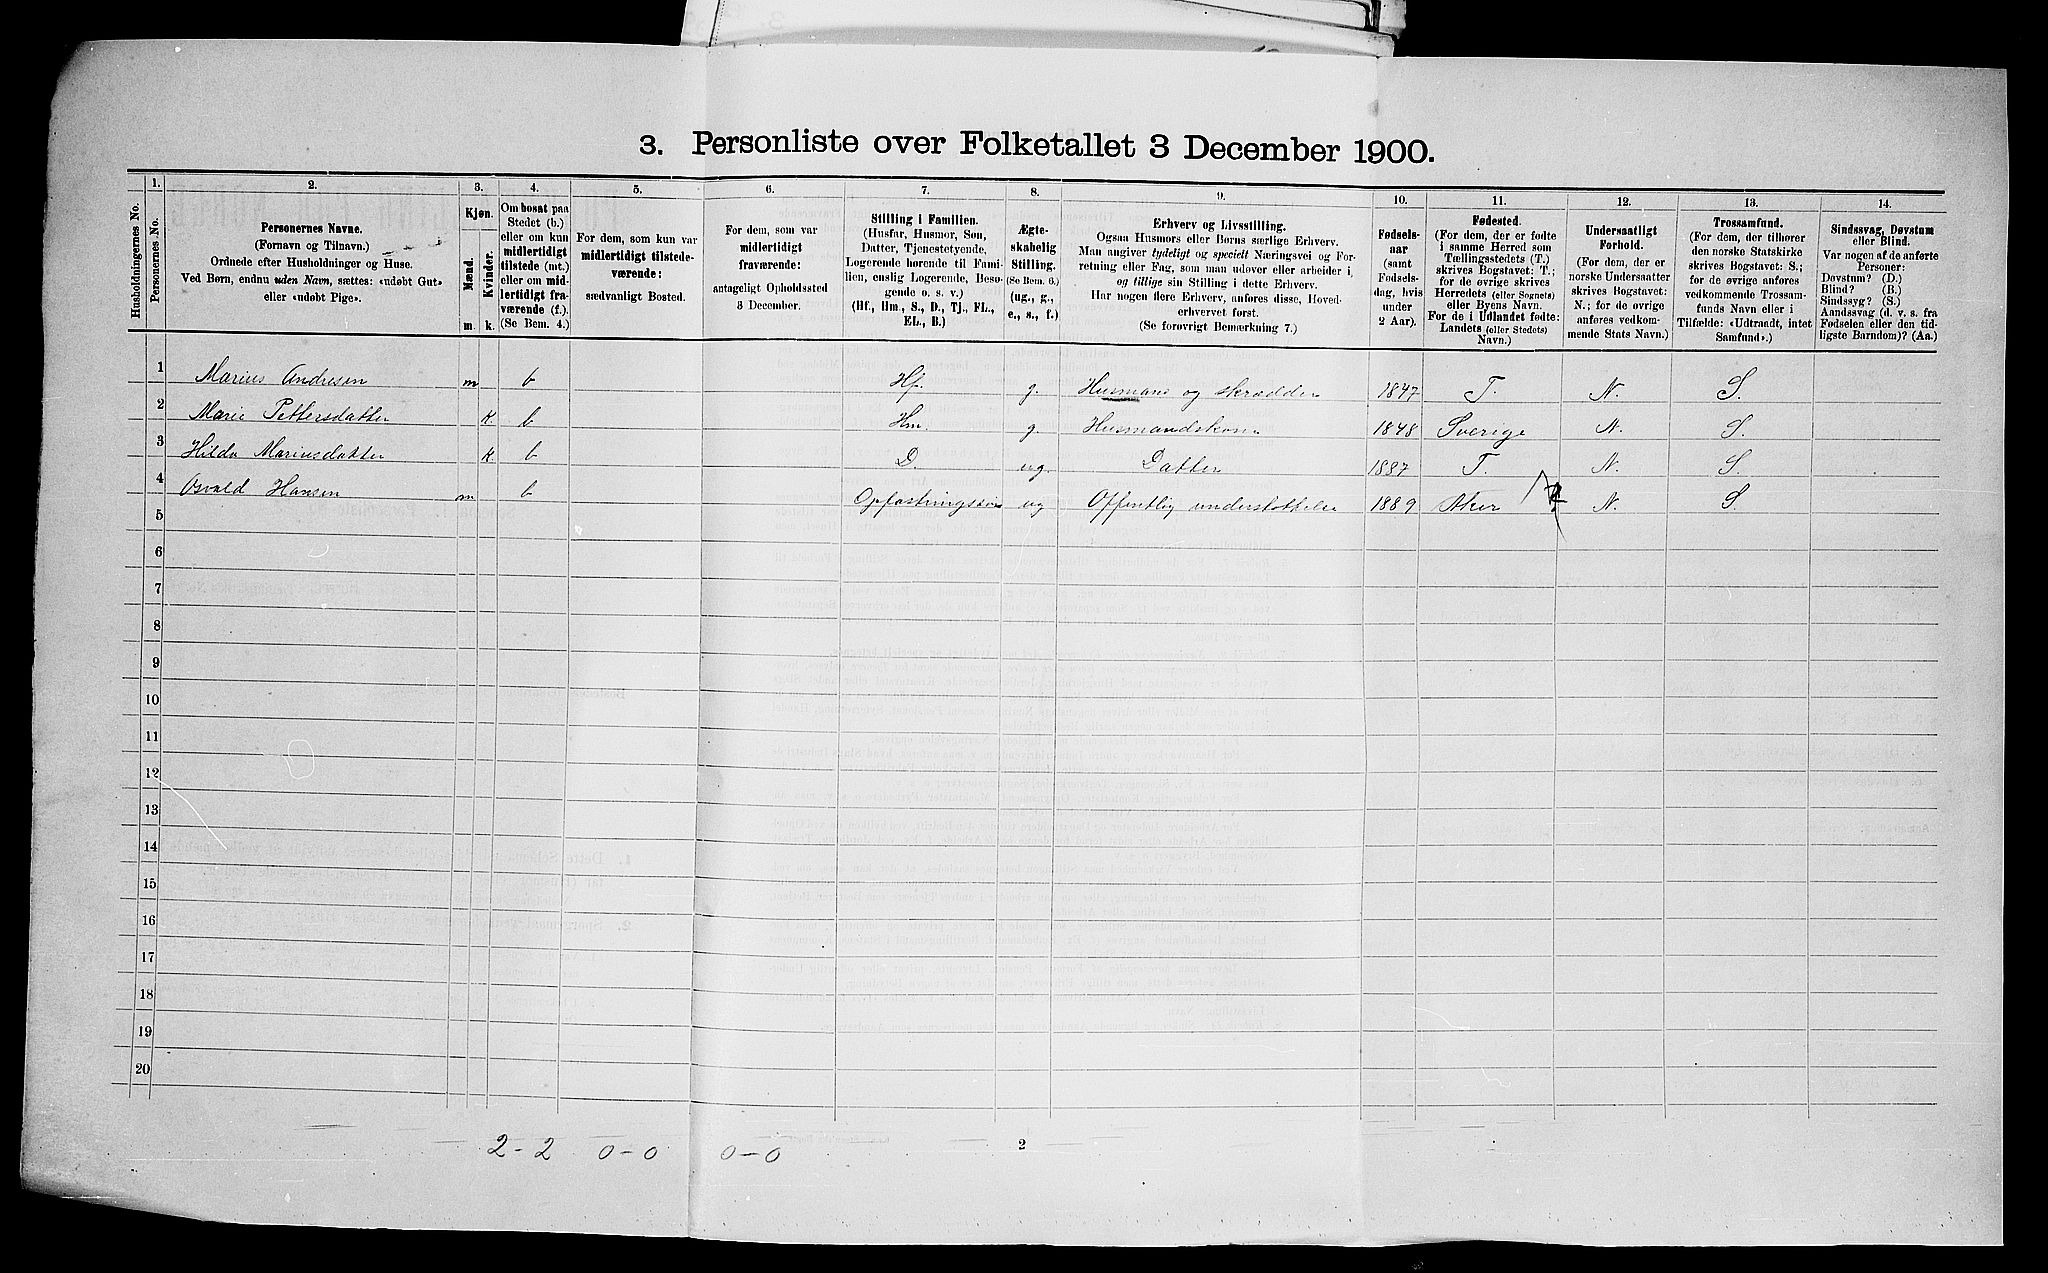 3. Personliste over Folketallet 3 December 1900.
Husholdningernes No.
1. Personernes No.
2. Personernes Navne.
(Fornavn og Tilnavn.)
Ordnede efter Husholdninger og Huse.
Ved Børn, endnu uden Navn, sættes: «udøbt Gut»
eller «udøbt Pige».
3. Kjøn.
Mænd. Kvinder.
m. k.
4. Om bosat paa
Stedet (b.)
eller om kun
midlertidigt
tilstede (mt.)
eller om mid-
lertidigt fra-
værende (f.).
(Se Bem. 4.)
5. For dem, som kun var
midlertidigt tilstede-
værende:
sædvanligt Bosted.
6. For dem, som var
midlertidigt
fraværende:
antageligt Opholdssted
3 December.
7. Stilling i Familien.
(Husfar, Husmor, Søn,
Datter, Tjenestetyende,
Logerende hørende til Fami-
lien, enslig Logerende, Besø-
gende o. s. v.)
(Hf., Hm., S., D., Tj., FL.,
EL., B.)
8. Ægte-
skabelig
Stilling.
(Se Bem. 6.)
(ug., g.,
e., s., f.)
9. Erhverv og Livsstilling.
Ogsaa Husmors eller Børns særlige Erhverv.
Man angiver tydeligt og specielt Næringsvei og For-
retning eller Fag, som man udover eller arbeider i,
og tillige sin Stilling i dette Erhverv.
Har nogen flere Erhverv, anføres disse, Hoved-
erhvervet først.
(Se forøvrigt Bemærkning 7.)
10. Fødsels-
aar
(samt
Fødsels-
dag, hvis
under
2 Aar).
11. Fødested.
(For dem, der er fødte
i samme Herred som
Tællingsstedets (T.)
skrives Bogstavet: T.;
for de øvrige skrives
Herredets (eller Sognets)
eller Byens Navn.
For de i Udlandet fødte:
Landets (eller Stedets)
Navn.)
12. Undersaatligt
Forhold.
(For dem, der er
norske Undersaatter
skrives Bogstavet:
N.; for de øvrige
anføres vedkom-
mende Stats Navn.)
13. Trossamfund.
(For dem, der tilhører
den norske Statskirke
skrives Bogstavet: S.;
for de øvrige anføres
vedkommende Trossam-
funds Navn eller i
Tilfælde: «Udtraadt, intet
Samfund».)
14. Sindssvag, Døvstum
eller Blind.
Var nogen af de anførte
Personer:
Døvstum? (D.)
Blind? (B.)
Sindssyg? (S.)
Aandssvag (d. v. s. fra
Fødselen eller den tid-
ligste Barndom)? (Aa.)
1 Marius Andresen m b Hf. g. Husmand og skrædder 1847 T. N. S.
2 Marie Pettersdatter K. b Hm. g. Husmandskone 1848 Sverige N. S.
3 Hilda Mariusdatter K b D. ug. Datter 1887 T. N. S.
4 Osvald Hansen m b Opfostringssøn ug Offentlig understøttelse 1889 Aker N. S.
5
6
7
8
9
10
11
12
13
14
15
16
17
18
19
20
2-2 0-0 0-0
2